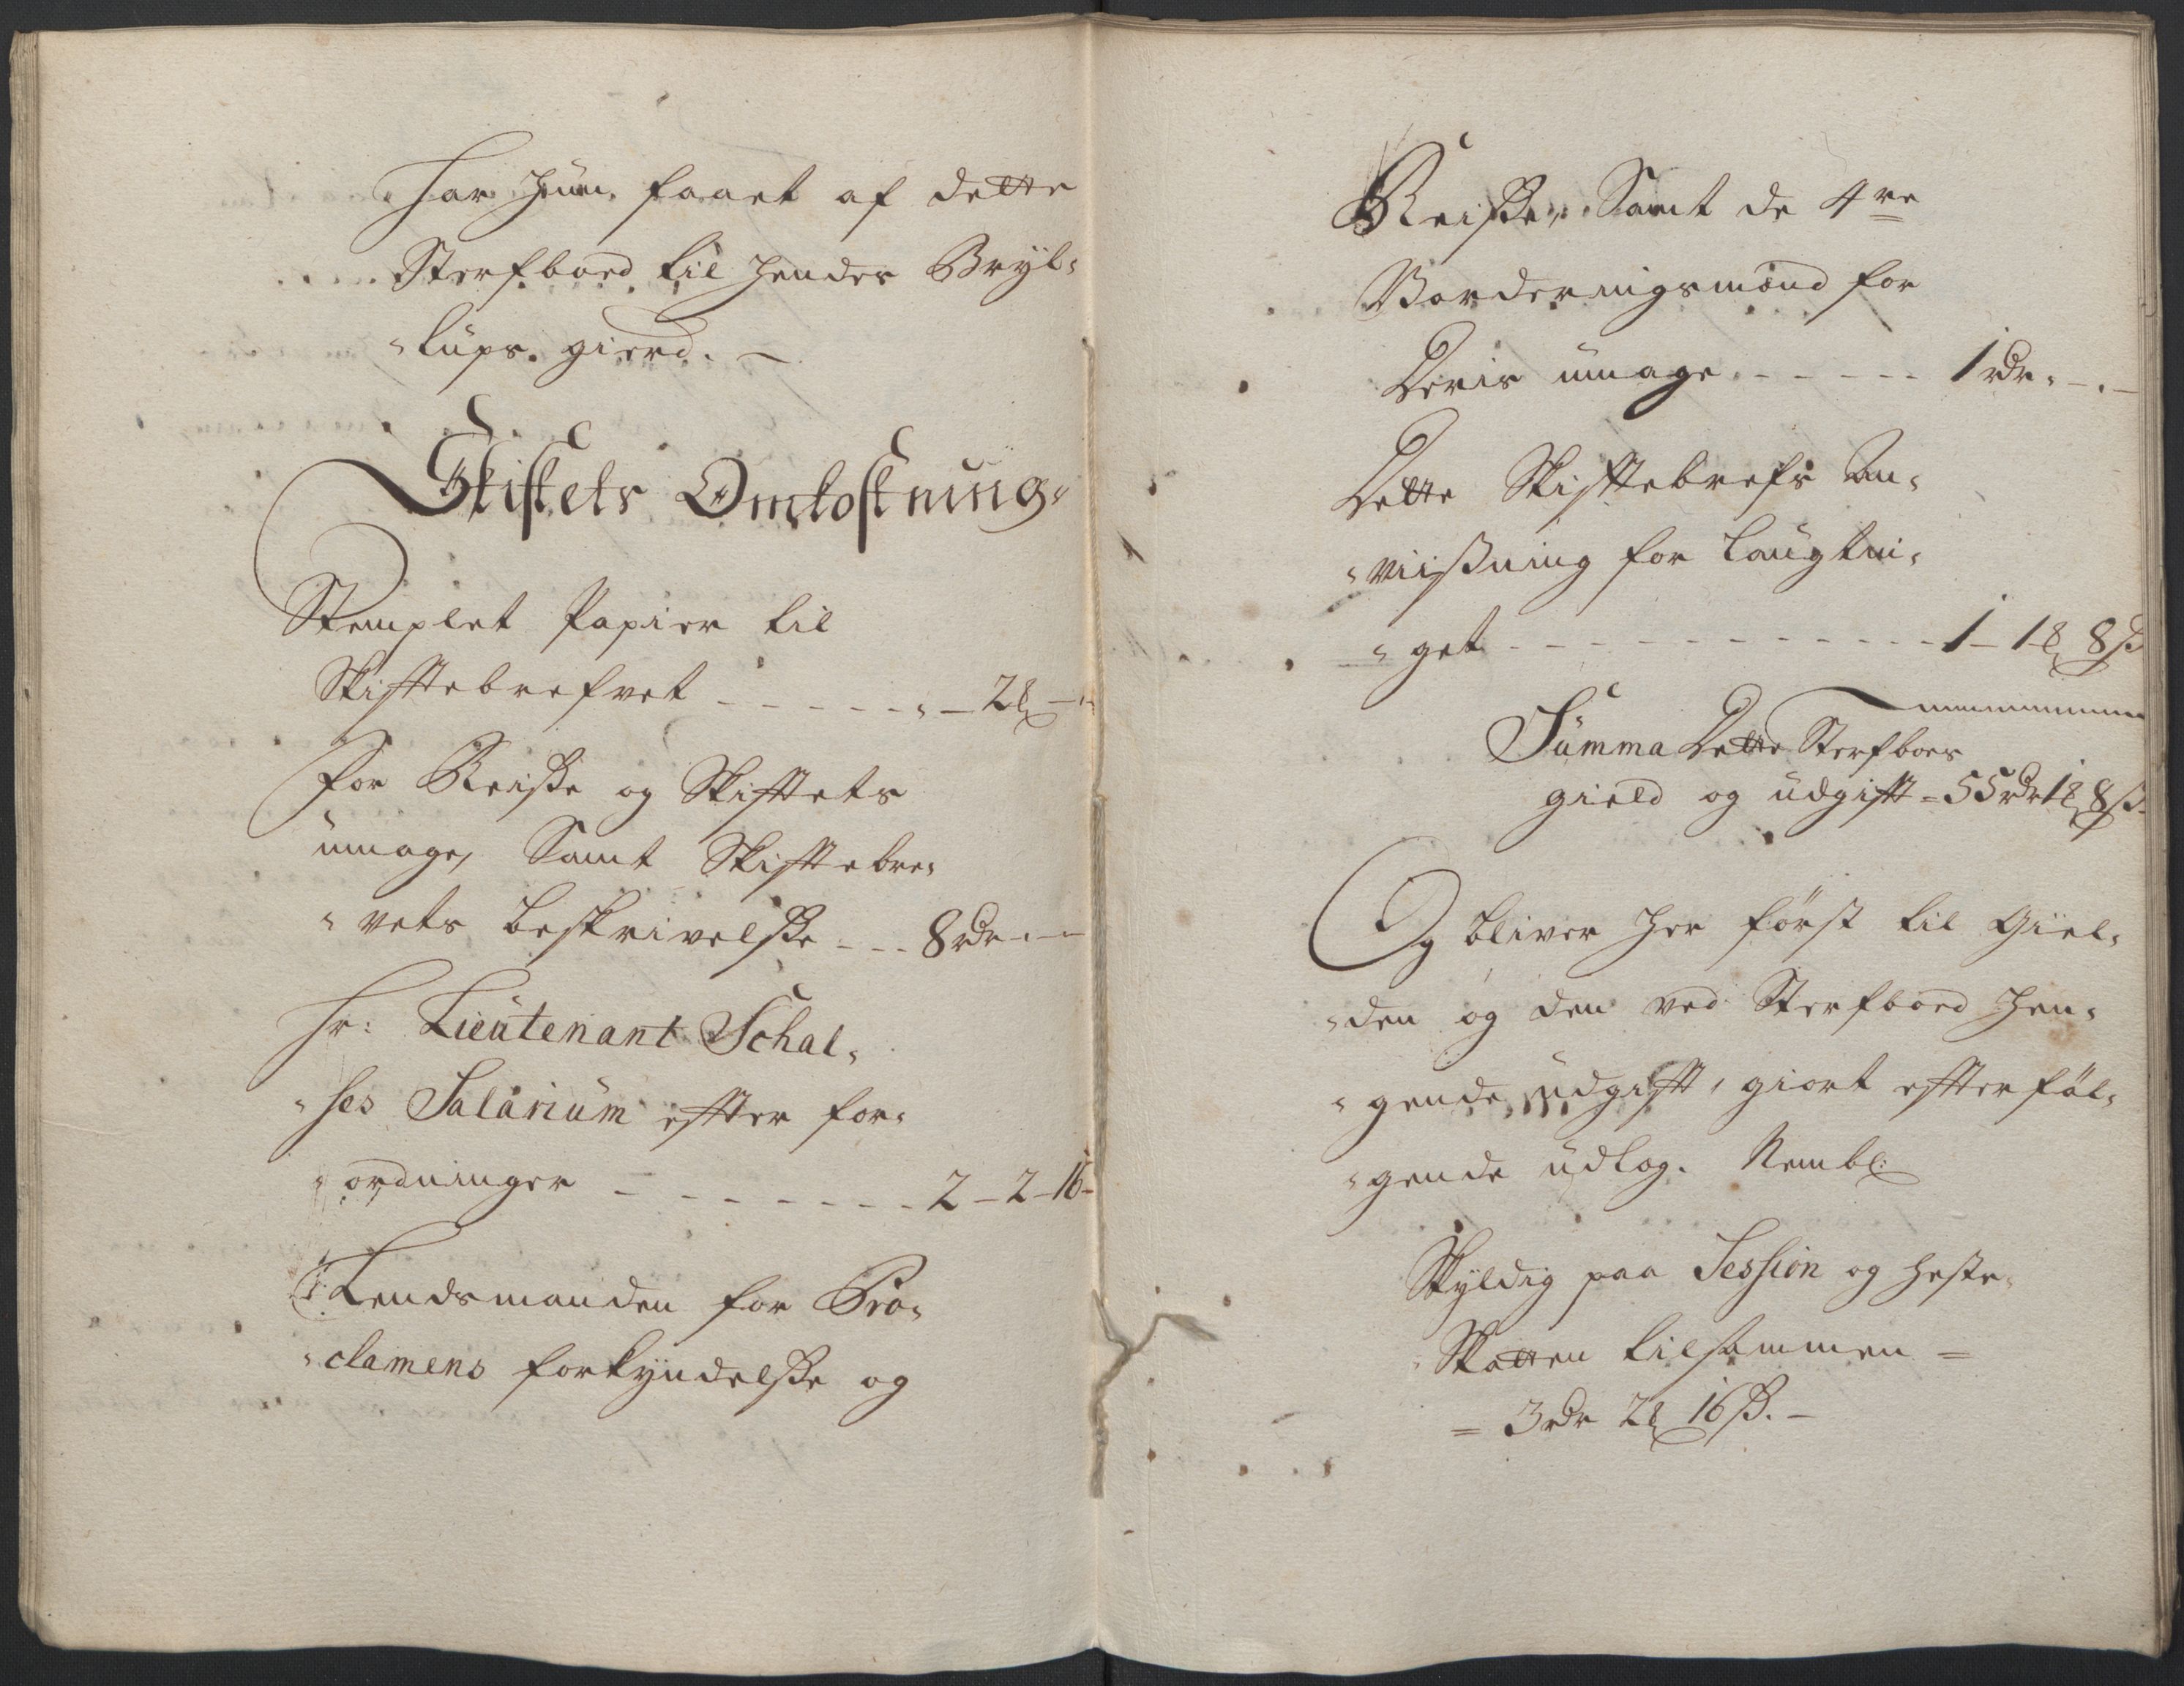 har hun faaet af dette
Sterfboed til hendes Bryl-
-lups gierd. -
Skiftets Omkostning
Stemplet Papier til
Skiftebrefvet - - - - - - 2 ℔ -
for Reisse og Skiftets
umage, Samt Skiftebre-
-vets beskrivelsse - - - 8 rdr - -
Hr: Lieutenant Schal-
-ses Salarium effter for-
-ordninger - - - - - - - - 2 - 2 - 16 -
Lendsmanden for Pro-
-clamens forkyndelsse og
Reisse, Samt de 4re
Vorderingsmænd for
Deris umage - - - - - - 1 rdr - . -
Dette Skiftebrefs An-
-viisning for laugtin-
-get - - - - - - - - - - - - 1 - 1 ℔ 8 ß
Summa Dette Sterfboes
gield og udgift = 55 rdr 1 ℔ 8 ß -
Og bliver her först til Giel-
-den og den ved Sterfboed hen-
-gende udgift, giort effterföl-
-gende udlog. Nembl:
Skyldig paa Session og heste-
Skatten tilsammen =
= 3 rdr 2 ℔ 16 ß. -